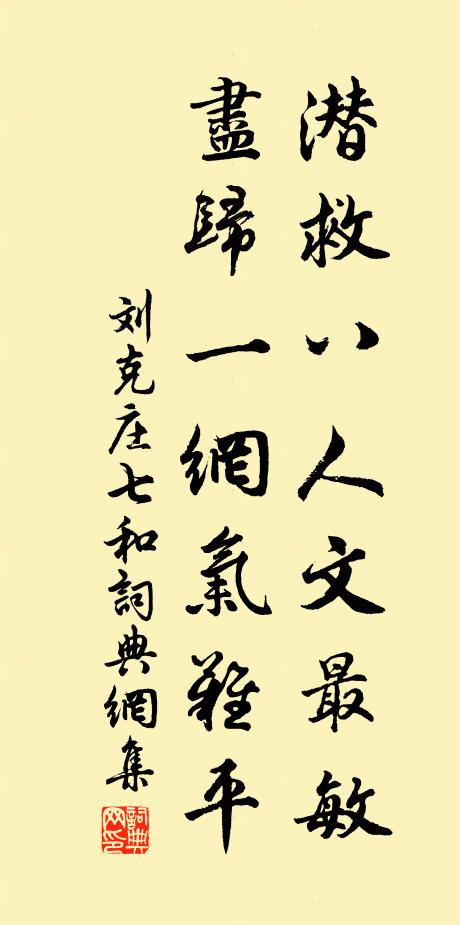 潜救八人文最敏
盡歸一網氣難平
刘克庄七和詞典網集
詞典网印